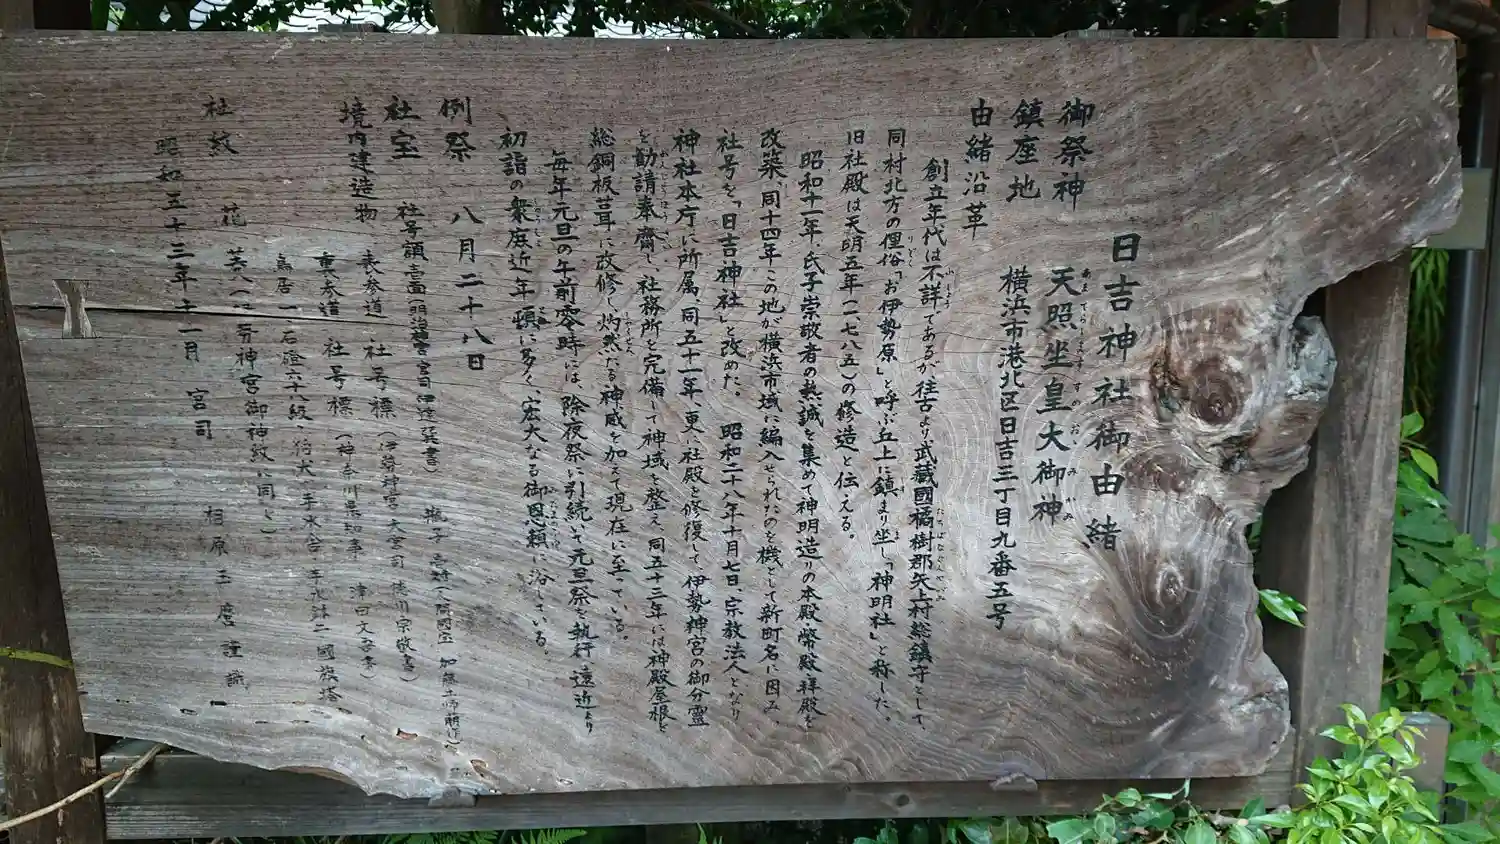 日吉神社御由緒
御祭神　天照坐皇大御神
あまてらしますすめおおみかみ
鎮座地　横浜市港北区日吉三丁目九番五号
由緒沿革
創立年代は不詳であるが往古より武蔵國橘樹郡矢上村総鎮守として、
同村北方の俚俗「お伊勢原」と呼ぶ丘上に鎮まり坐し「神明社」と称した。
旧社殿は天明五年（一、七八五）の修造と伝える。
昭和十一年、氏子崇敬者の熱誠を集めて神明造りの本殿幣殿拝殿を
改築、同十四年この地が横浜市域に編入せられたのを機として新町名に因み、
社号を「日吉神社」と改めた。　昭和二十八年十月七日、宗教法人となり
神社本庁に所属、同五十一年、更に社殿を修復して伊勢神宮の御分霊
を勧請奉齋し、社務所を完備して神域を整え、同五十三年には神殿屋根を
総銅板葺に改修し灼然たる神威を加えて現在に至っている。
毎年元旦の午前零時には、除夜祭に引続いて元旦祭を執行、遠近より
初詣の衆庶近年頓に多く、宏大なる御恩頼に浴している。
例祭　八月二十八日
社宝　社号額壱面（明治神宮宮司伊達巽書）　瓶子壱対（人間国宝　加藤土師萌作）
境内建造物　表参道　社号標（伊勢神宮大宮司　徳川宗敬書）
裏参道　社号標（神奈川県知事　津田文吾書）
鳥居一　石磴六十八級、狛犬　手水舎　手水鉢二　國旗塔
社紋　花菱（伊勢神宮御神紋に同じ）
昭和五十三年十一月　宮司　相原玉麿謹識